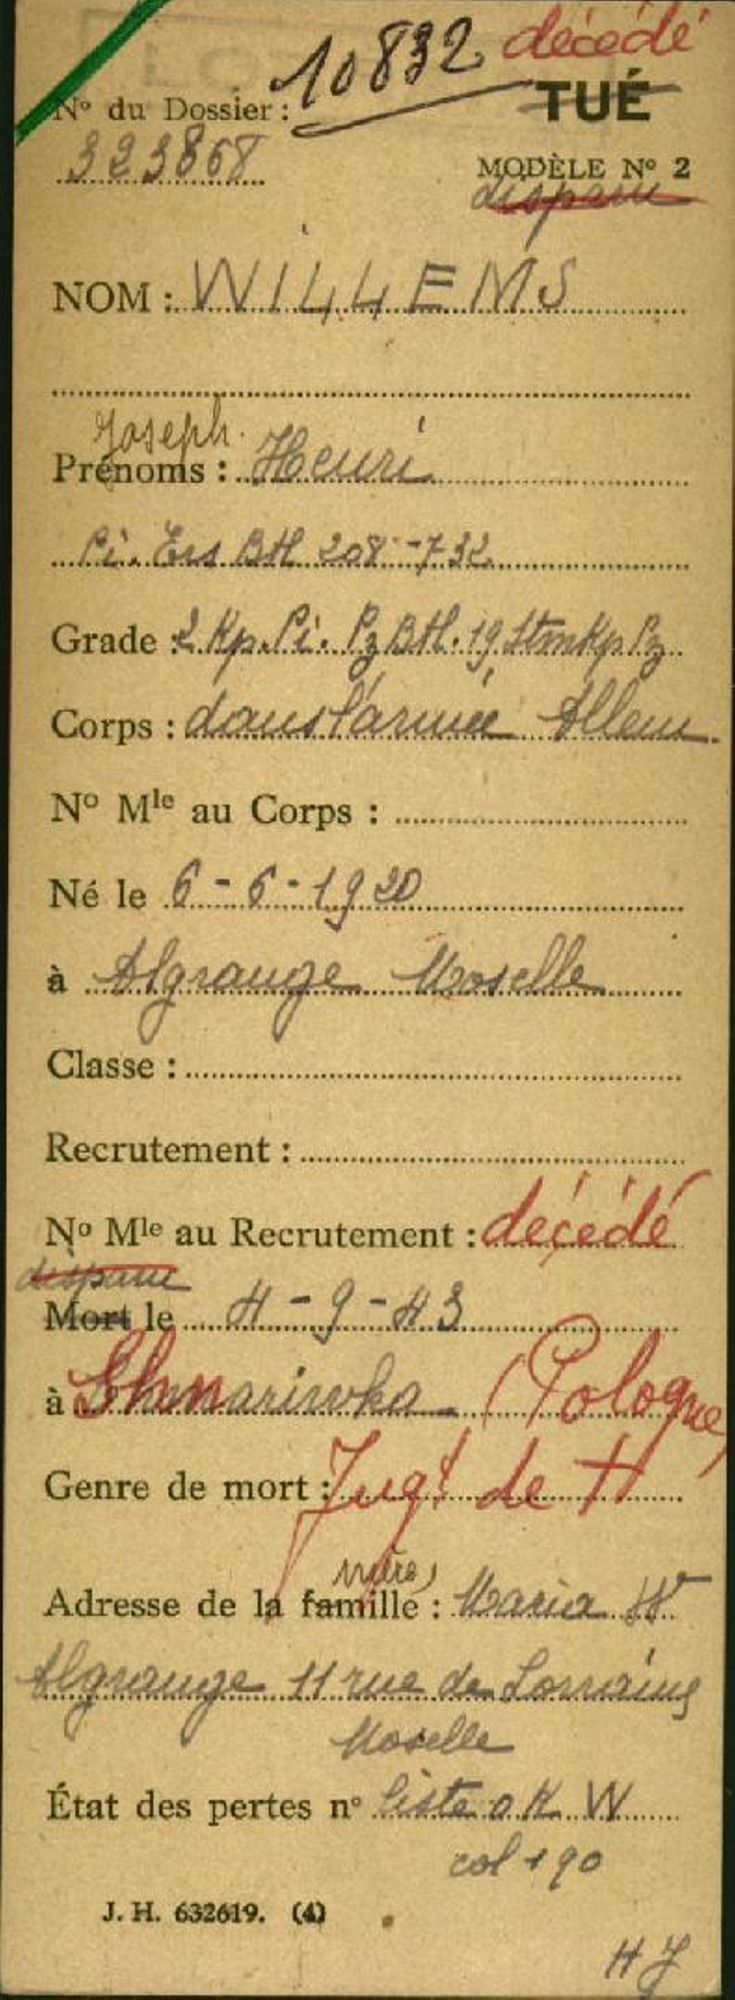 10832 décédé
N° du Dossier : TUÉ
323868
MODÈLE N° 2
disparu
NOM : WILLEMS
Joseph.
Prénoms : Henri
Pi. Ers Btl 208 - 732
Grade : 2 Kp. Pi. Pz Btl. 19 Stmkp Pz
Corps : dans l'armée Allem
N° Mle au Corps :
Né le 6 - 6 - 1920
à Algrange Moselle
Classe :
Recrutement :
N° Mle au Recrutement : décédé
disparu
Mort le 4 - 9 - 43
à Shmariwka (Pologne)
Genre de mort : Jugt de H
mère
Adresse de la famille : Maria W
Algrange 11 rue de Lorraine
Moselle
État des pertes n° liste O K W
col 190
J. H. 632619. (4)
H J